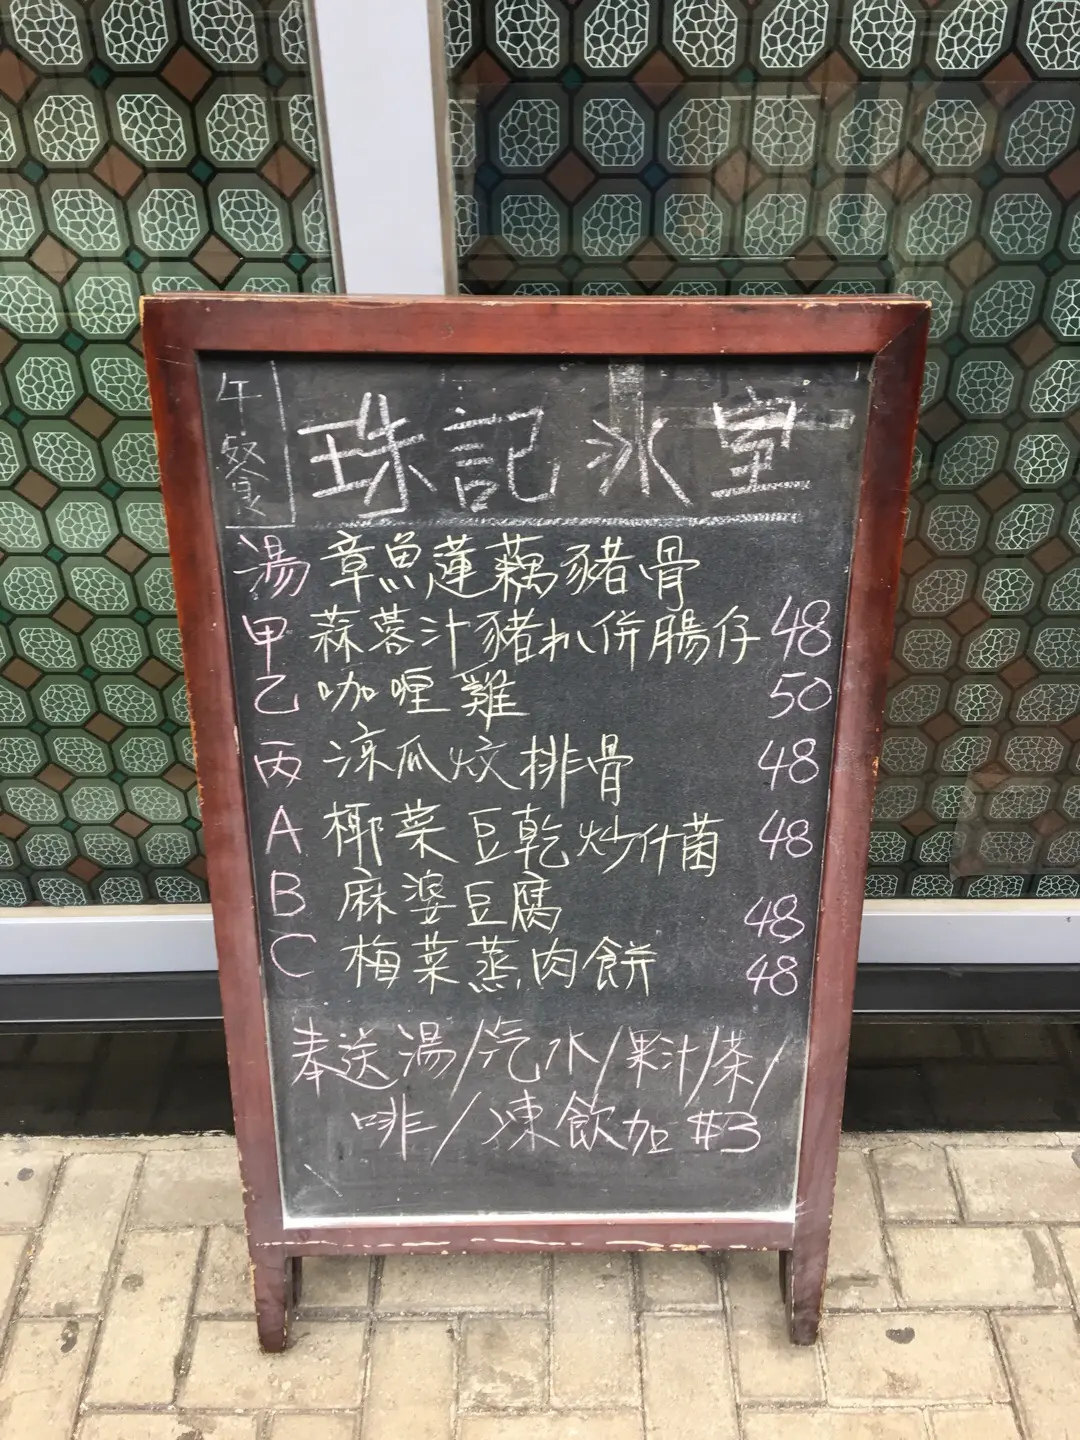 午餐
珠記冰室
湯 章魚蓮藕豬骨
甲 蒜蓉汁豬扒併腸仔 48
乙 咖喱雞 50
丙 涼瓜炆排骨 48
A 椰菜豆乾炒什菌 48
B 麻婆豆腐 48
C 梅菜蒸肉餅 48
奉送湯/汽水/果汁/茶/
啡/凍飲加 #3